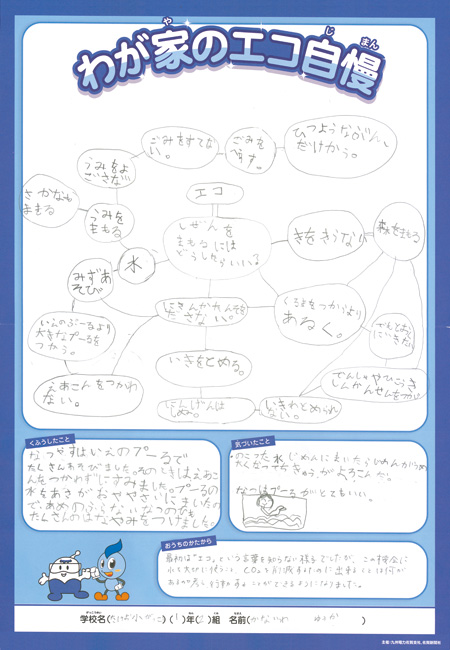 わが家のエコ自慢
や
じまん
エコ
しぜんを
まもるには
どうしたらいい？
ごみをすてな
い。
ごみを
へらす。
ひつようなぶん
だけかう。
うみをよ
ごさない
さかなも
まもる
うみを
まもる
水
みずあ
そび
いえのぷーるより
大きなプールを
つかう。
えあこんをつかわ
ない。
にさんかたんそを
ださない。
いきをとめる。
にんげんは
しぬ。
いきわとめられ
ない。
くるまをつかうより
あるく。
きをきらない
森をまもる
でんしゃやひこうき
しんかんせんをつかう
くふうしたこと
なつやすみはいえのプールで
たくさんあそびました。そのときはえあこ
んをつかわずにすみました。プールの
水をあさがおややさいにまいたの
で、あめのふらないなつのひも
たくさんのはなやみをつけました。
気づいたこと
のこった水じめんにまいたらじめんがつめ
たくなってちきゅうがよろこんだ。
なつはプールがとてもいい。
おうちのかたから
最初は"エコ"という言葉を知らない様子でしたが、この機会に
水を大切に使うこと、CO₂を削減するために出来ることは何が
あるか考え行動することができるようになりました。
学校名( 小 )( 1 )年( )組 名前(
主催:九州電力佐賀支社、佐賀新聞社